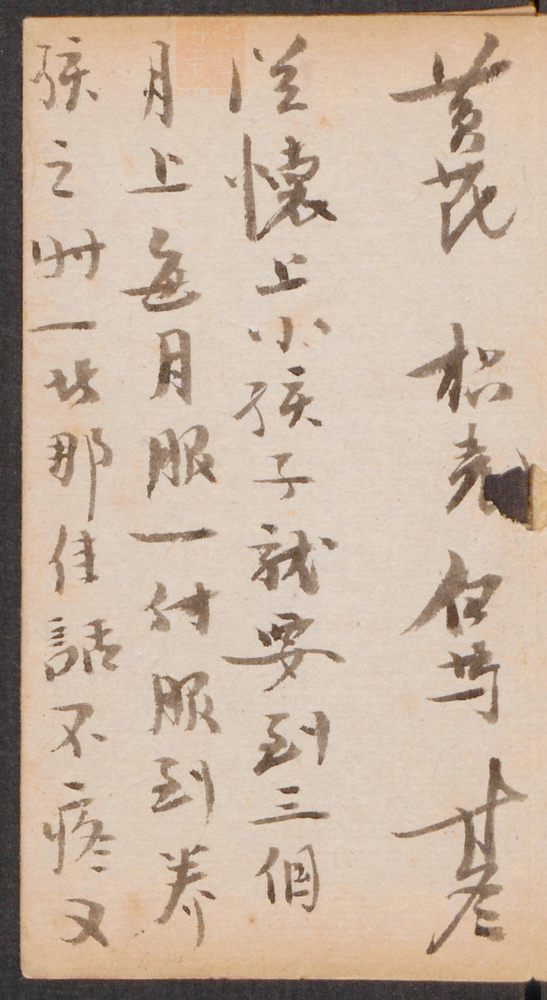 黄芪 枳壳 白芍 甘草
从懷上小孩子就要到三個
月上每月服一付服到养
孩之时一些那佳話不疼又